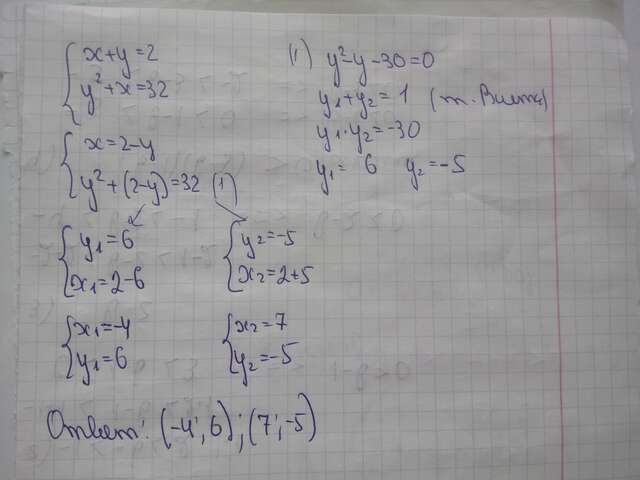 x+y=2
y²+x=32
x=2-y
y²+(2-y)=32 (1)
y₁=6
x₁=2-6
y₂=-5
x₂=2+5
x₁=-4
y₁=6
x₂=7
y₂=-5
Ответ: (-4; 6); (7; -5)
(1) y²-y-30=0
y₁+y₂=1 (т. Виета)
y₁·y₂=-30
y₁=6 y₂=-5